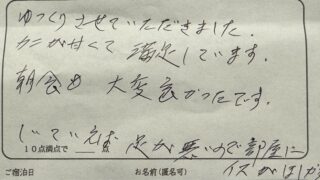 ゆっくりさせていただきました.
カニが甘くて 満足しています.
朝食も 大変良かったです.
しいていえば 足が悪いので部屋に
イスがほしか
10点満点で ___ 点
ご宿泊日 お名前(匿名可)